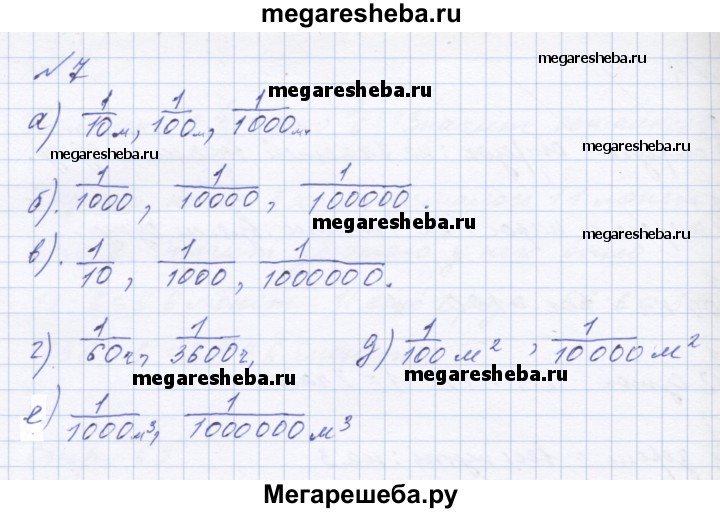 megaresheba.ru
№ 7
megaresheba.ru
megaresheba.ru
а) 1/10 м, 1/100 м, 1/1000 м.
megaresheba.ru
megaresheba.ru
б). 1/1000, 1/10000, 1/100000.
megaresheba.ru
megaresheba.ru
в). 1/10, 1/1000, 1/1000000.
г). 1/60 ч, 1/3600 ч. д) 1/100 м², 1/10000 м²
megaresheba.ru
megaresheba.ru
е) 1/1000 м³, 1/1000000 м³
Мегарешеба.ру